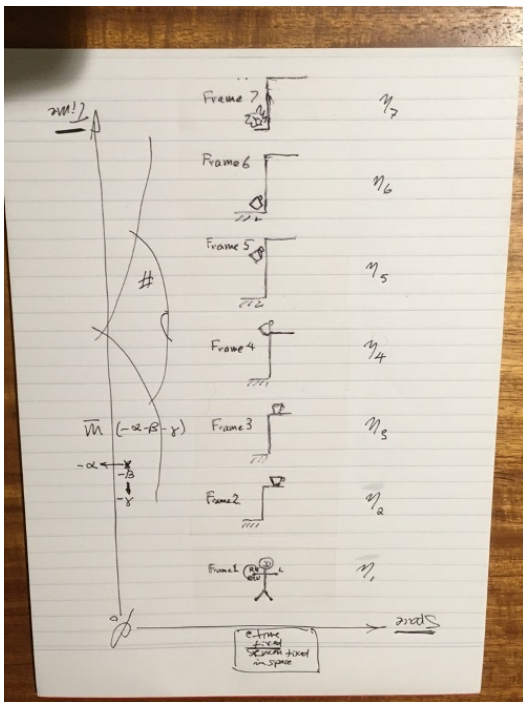 Time
Frame 7
η₇
Frame 6
η₆
Frame 5
η₅
#
Frame 4
η₄
m̅ (-α-β-γ)
Frame 3
η₃
-α
-β
-γ
Frame 2
η₂
Frame 1
RH
L
η₁
Space
fixed
fixed
in space